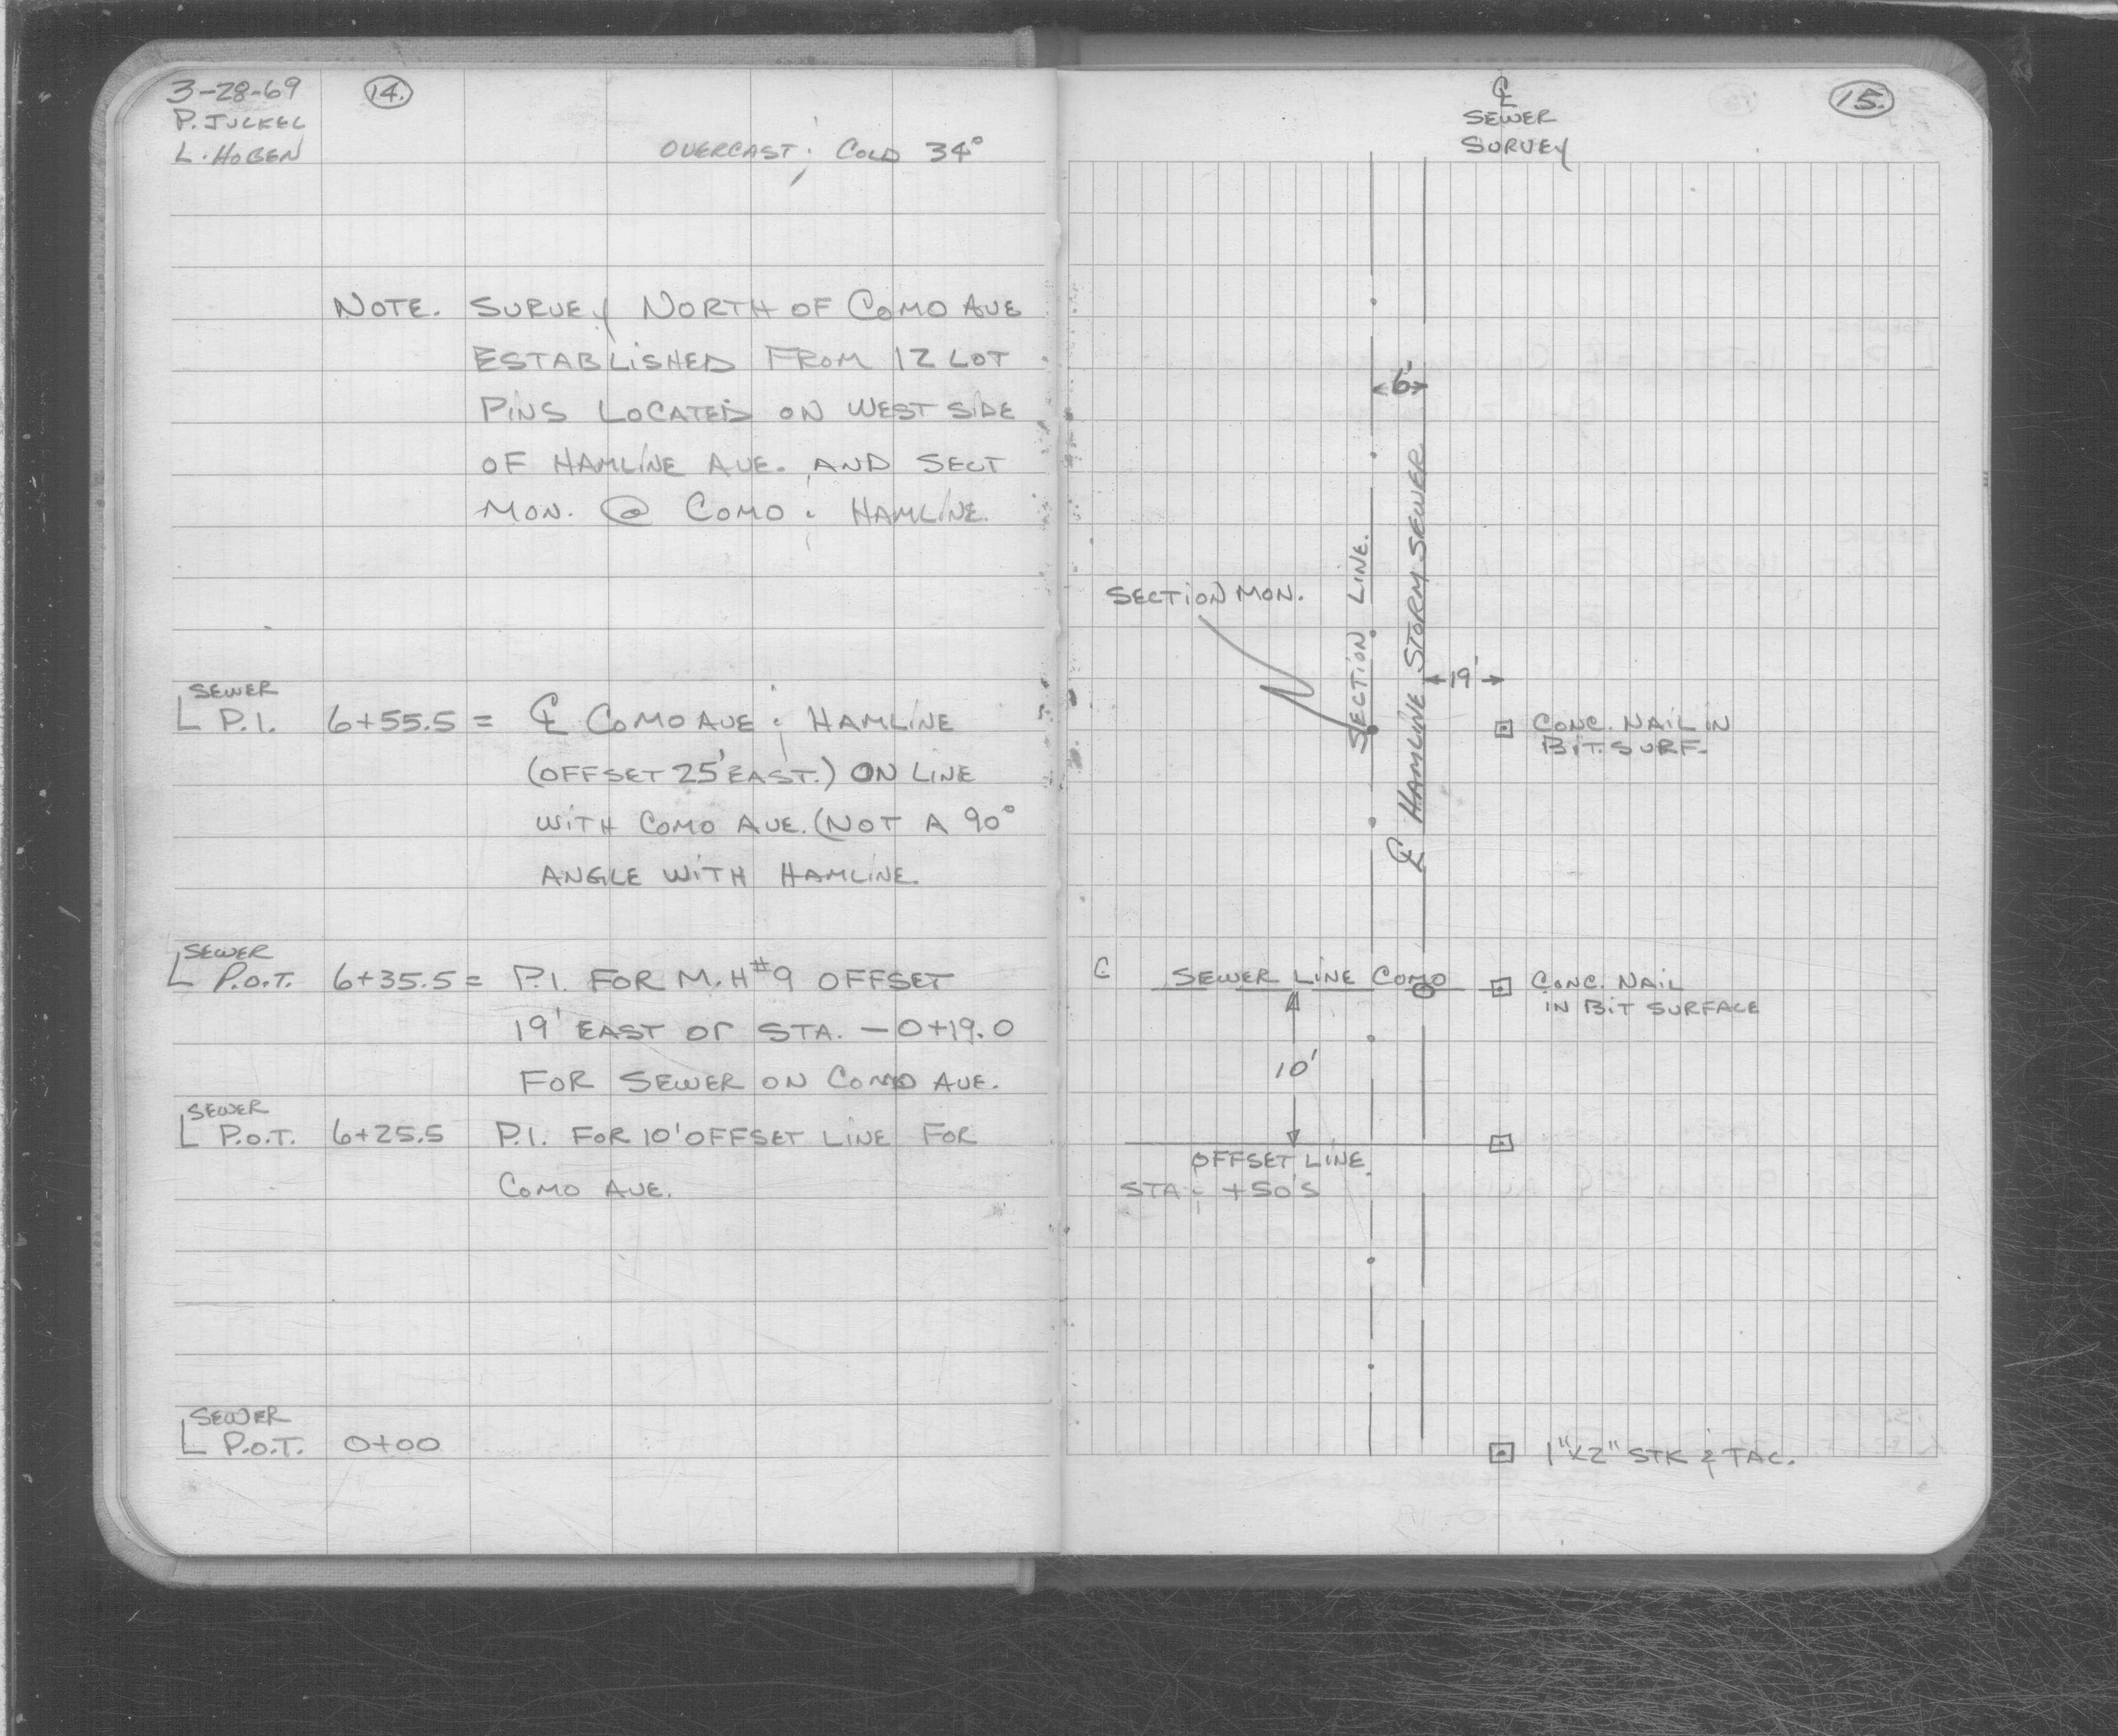 3-28-69
14.
P. JUCKEL
L. HOBEN
OVERCAST & COLD 34°
NOTE. SURVEY NORTH OF COMO AVE
ESTABLISHED FROM 12 LOT
PINS LOCATED ON WEST SIDE
OF HAMLINE AVE. AND SECT
MON. @ COMO & HAMLINE.
SEWER
P.I. 6+55.5 = ℄ COMO AVE & HAMLINE
(OFFSET 25' EAST.) ON LINE
WITH COMO AVE. (NOT A 90°
ANGLE WITH HAMLINE.
SEWER
P.O.T. 6+35.5 = P.I. FOR M.H #9 OFFSET
19' EAST OF STA. -0+19.0
FOR SEWER ON COMO AVE.
SEWER
P.O.T. 6+25.5 P.I. FOR 10' OFFSET LINE FOR
COMO AVE.
SEWER
P.O.T. 0+00
℄
SEWER
SURVEY
15.
6'
SECTION MON.
SECTION LINE.
℄ HAMLINE STORM SEWER
19'
CONC. NAIL IN
BIT. SURF.
C SEWER LINE COMO
CONC. NAIL
IN BIT SURFACE
10'
OFFSET LINE
STA & +50'S
1"x2" STK & TAC.